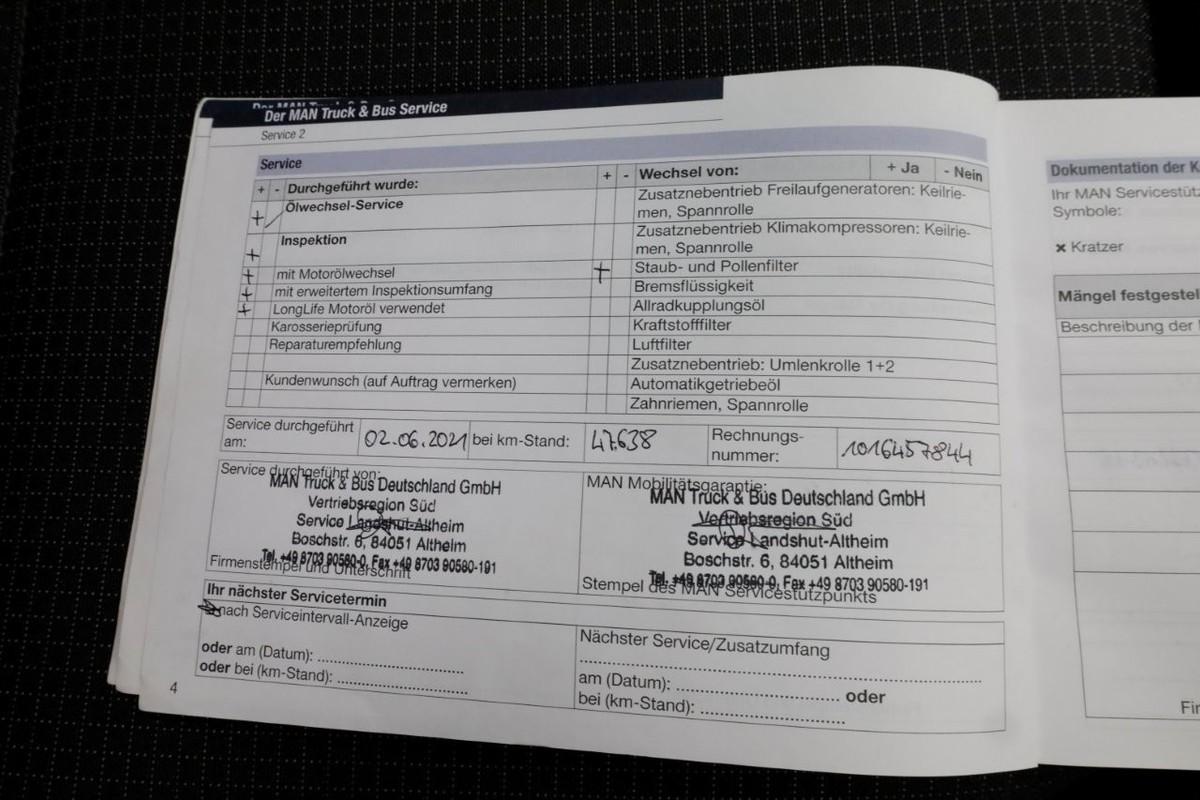 Der MAN Truck & Bus Service
Service 2
Service
+ - Durchgeführt wurde:
+ Ölwechsel-Service
+ Inspektion
+ mit Motorölwechsel
+ mit erweitertem Inspektionsumfang
+ LongLife Motoröl verwendet
Karosserieprüfung
Reparaturempfehlung
Kundenwunsch (auf Auftrag vermerken)
+ - Wechsel von: + Ja - Nein
Zusatznebentrieb Freilaufgeneratoren: Keilrie-
men, Spannrolle
Zusatznebentrieb Klimakompressoren: Keilrie-
men, Spannrolle
+ Staub- und Pollenfilter
Bremsflüssigkeit
Allradkupplungsöl
Kraftstofffilter
Luftfilter
Zusatznebentrieb: Umlenkrolle 1+2
Automatikgetriebeöl
Zahnriemen, Spannrolle
Service durchgeführt
am:
02.06.2021
bei km-Stand:
47.638
Rechnungs-
nummer:
10164578​44
Service durchgeführt von:
MAN Truck & Bus Deutschland GmbH
Vertriebsregion Süd
Service Landshut-Altheim
Boschstr. 6, 84051 Altheim
Tel. +49 8703 90580-0, Fax +49 8703 90580-191
Firmenstempel und Unterschrift
MAN Mobilitätsgarantie:
MAN Truck & Bus Deutschland GmbH
Vertriebsregion Süd
Service Landshut-Altheim
Boschstr. 6, 84051 Altheim
Tel. +49 8703 90580-0, Fax +49 8703 90580-191
Stempel des MAN Servicestützpunkts
Ihr nächster Servicetermin
nach Serviceintervall-Anzeige
oder am (Datum): ........................
oder bei (km-Stand): ........................
Nächster Service/Zusatzumfang
am (Datum): ........................ oder
bei (km-Stand): ........................
4
Dokumentation der
Ihr MAN
Symbole:
× Kratzer
Mängel
Beschreibung der